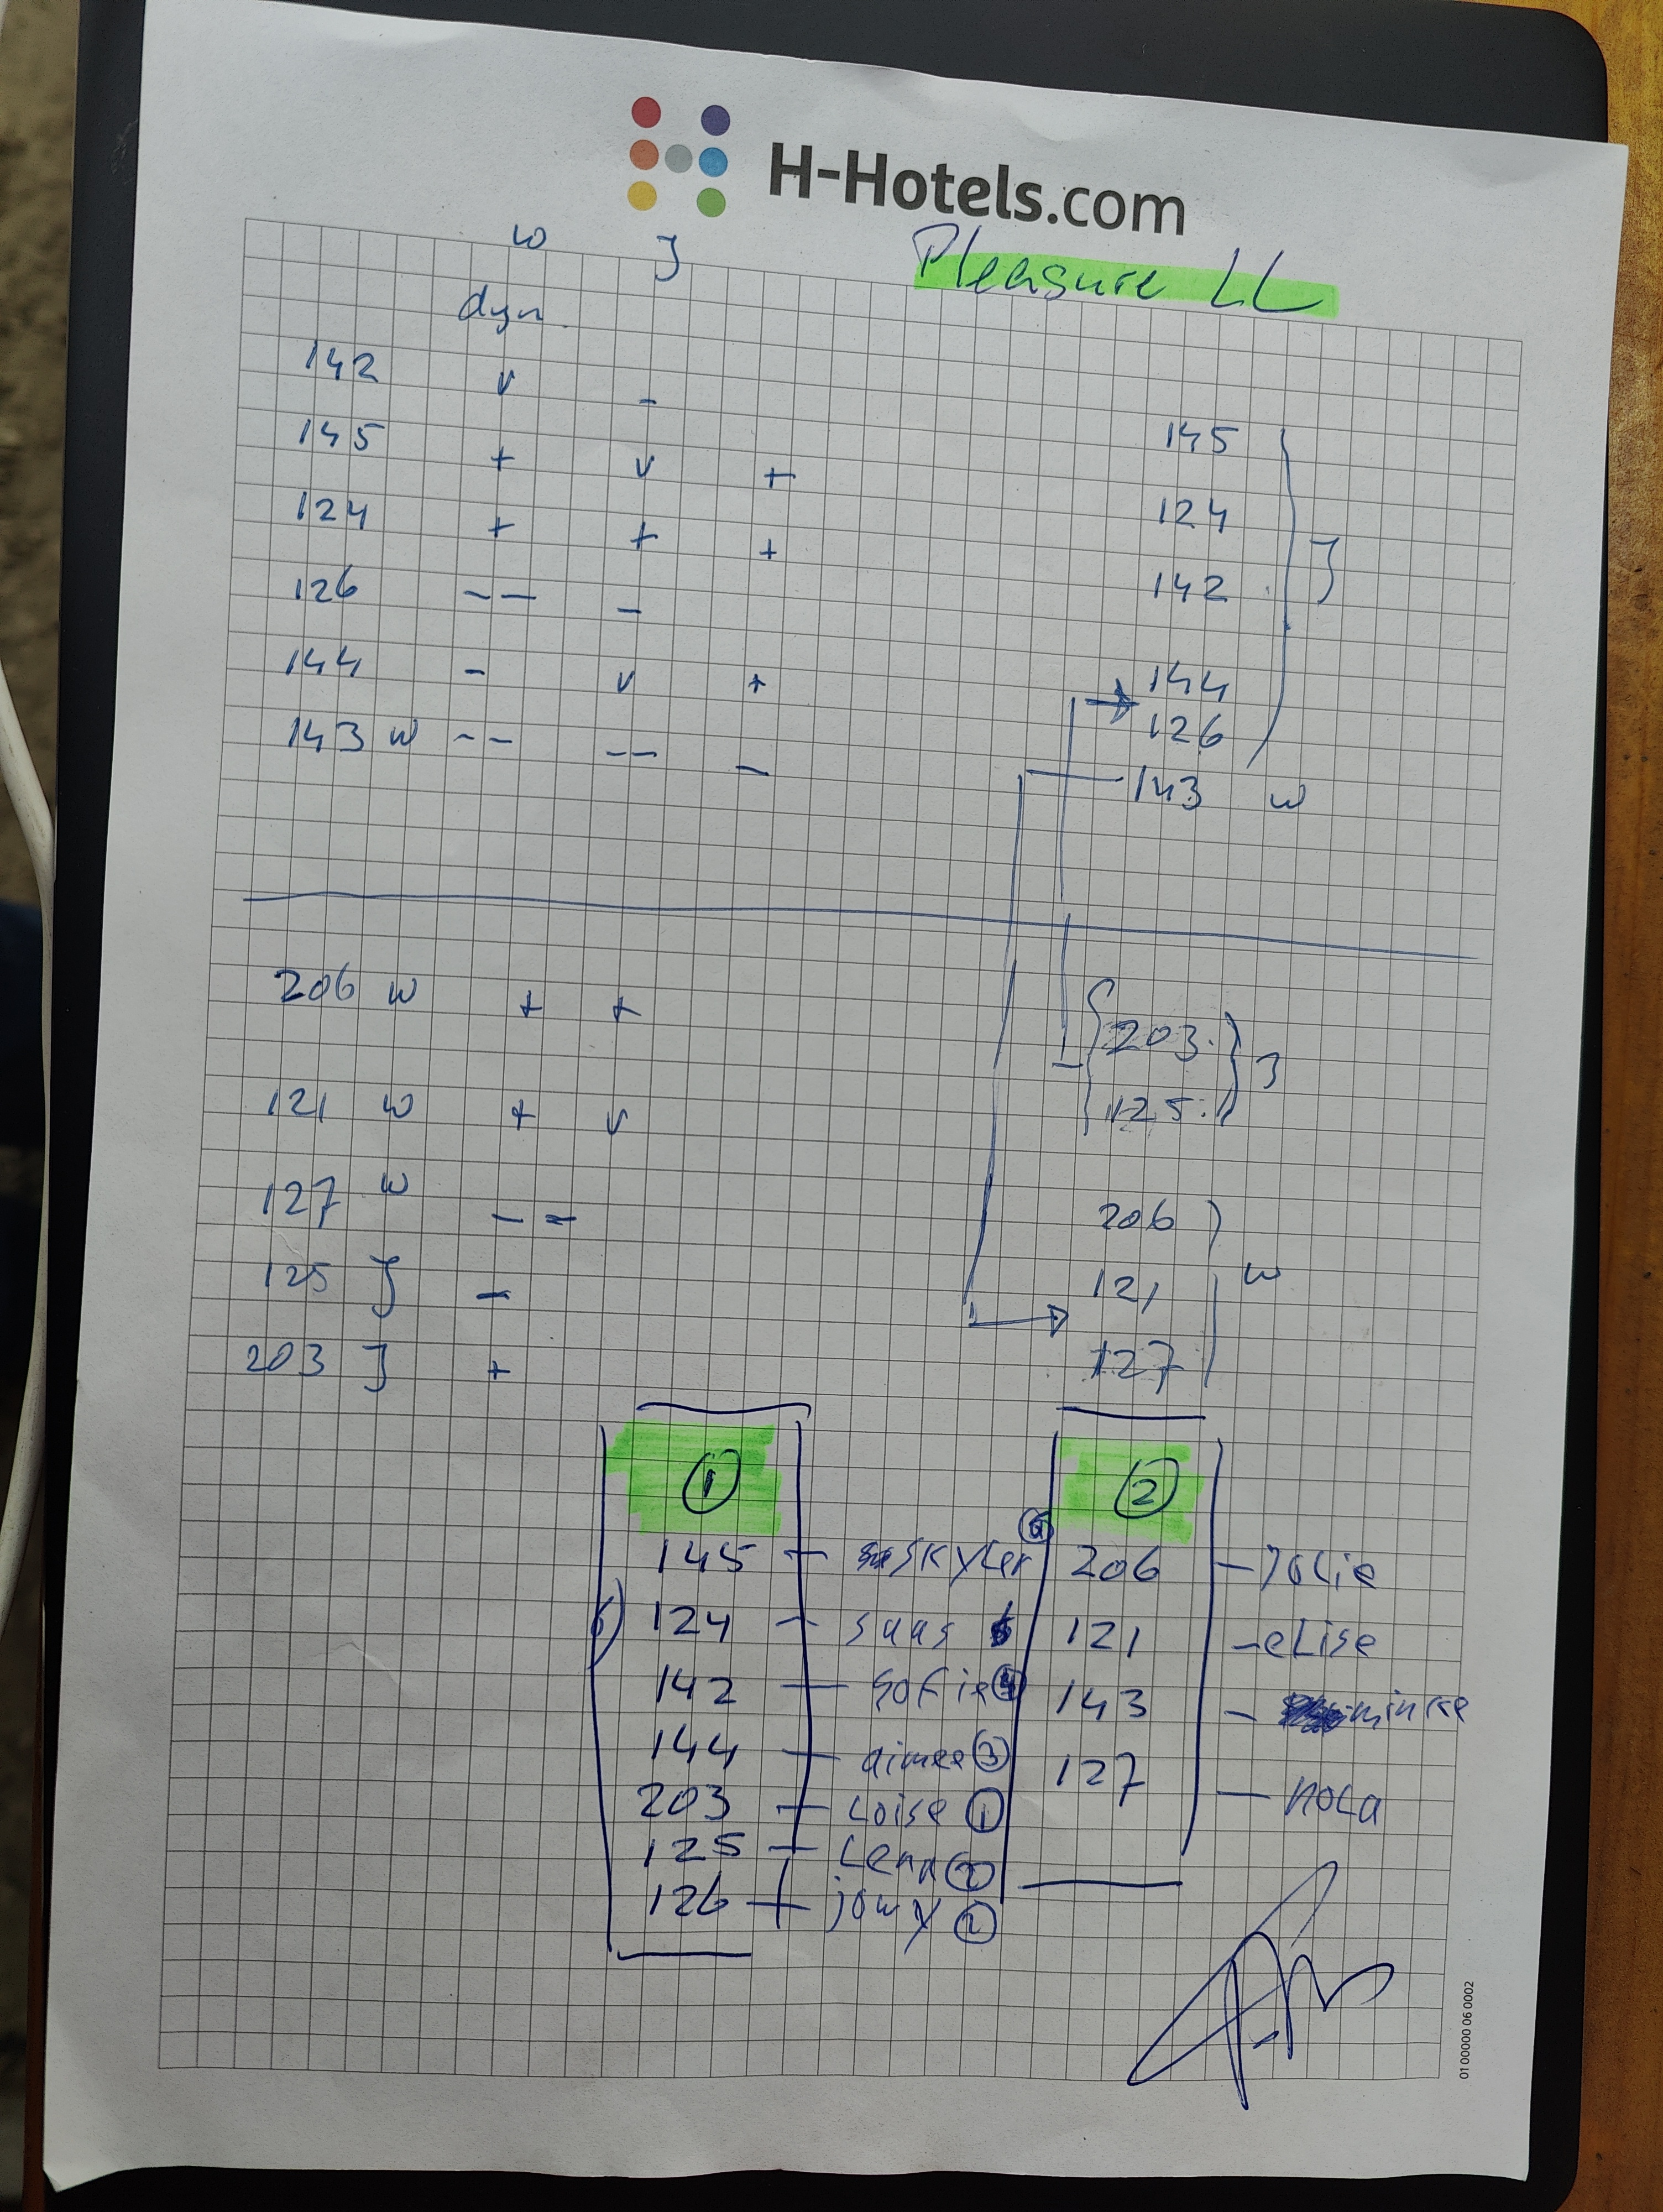 H-Hotels.com
w J
Pleasure LL
dyn.
142 v -
145 + v +
124 + + +
126 -- -
144 - v +
143 w -- -- -
145
124
142
J
144
126
143 w
206 w + +
121 w + v
127 w - =
125 J -
203 J +
203.
125.
J
206
121
127
w
1
145 - skyler
124 - saas
142 - sofie 4
144 - aimee 3
203 - Loise 1
125 - Lena
126 - jowy 2
2
206 - Jolie
121 - eLise
143 - minke
127 - noLa
01 00000 06 0002